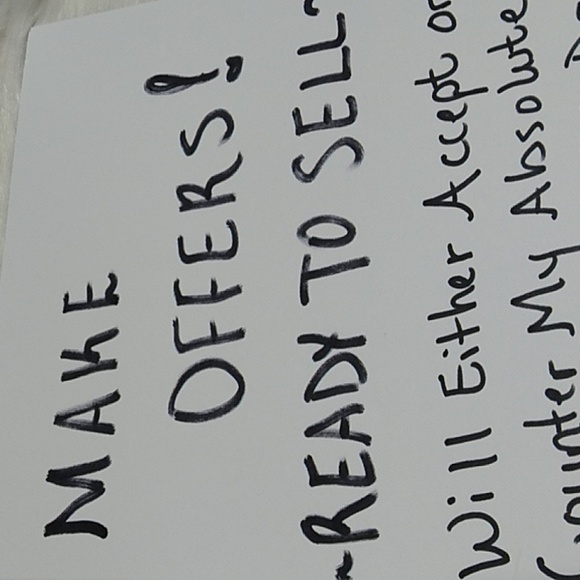 MAKE
OFFERS!
~READY TO SELL~
Will Either Accept or
Counter My Absolute